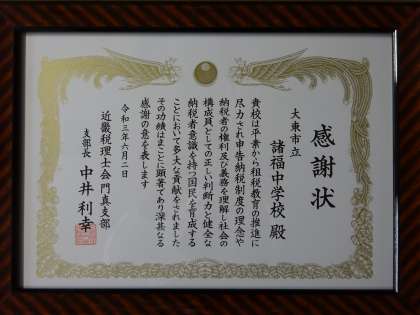 感謝状
大東市立
諸福中学校 殿
貴校は平素から租税教育の推進に
尽力され申告納税制度の理念や
納税者の権利及び義務を理解し社会の
構成員としての正しい判断力と健全な
納税者意識を持つ国民を育成する
ことにおいて多大な貢献をされました
その功績はまことに顕著であり深甚なる
感謝の意を表します
令和三年六月二日
近畿税理士会 門真支部
支部長 中井利幸